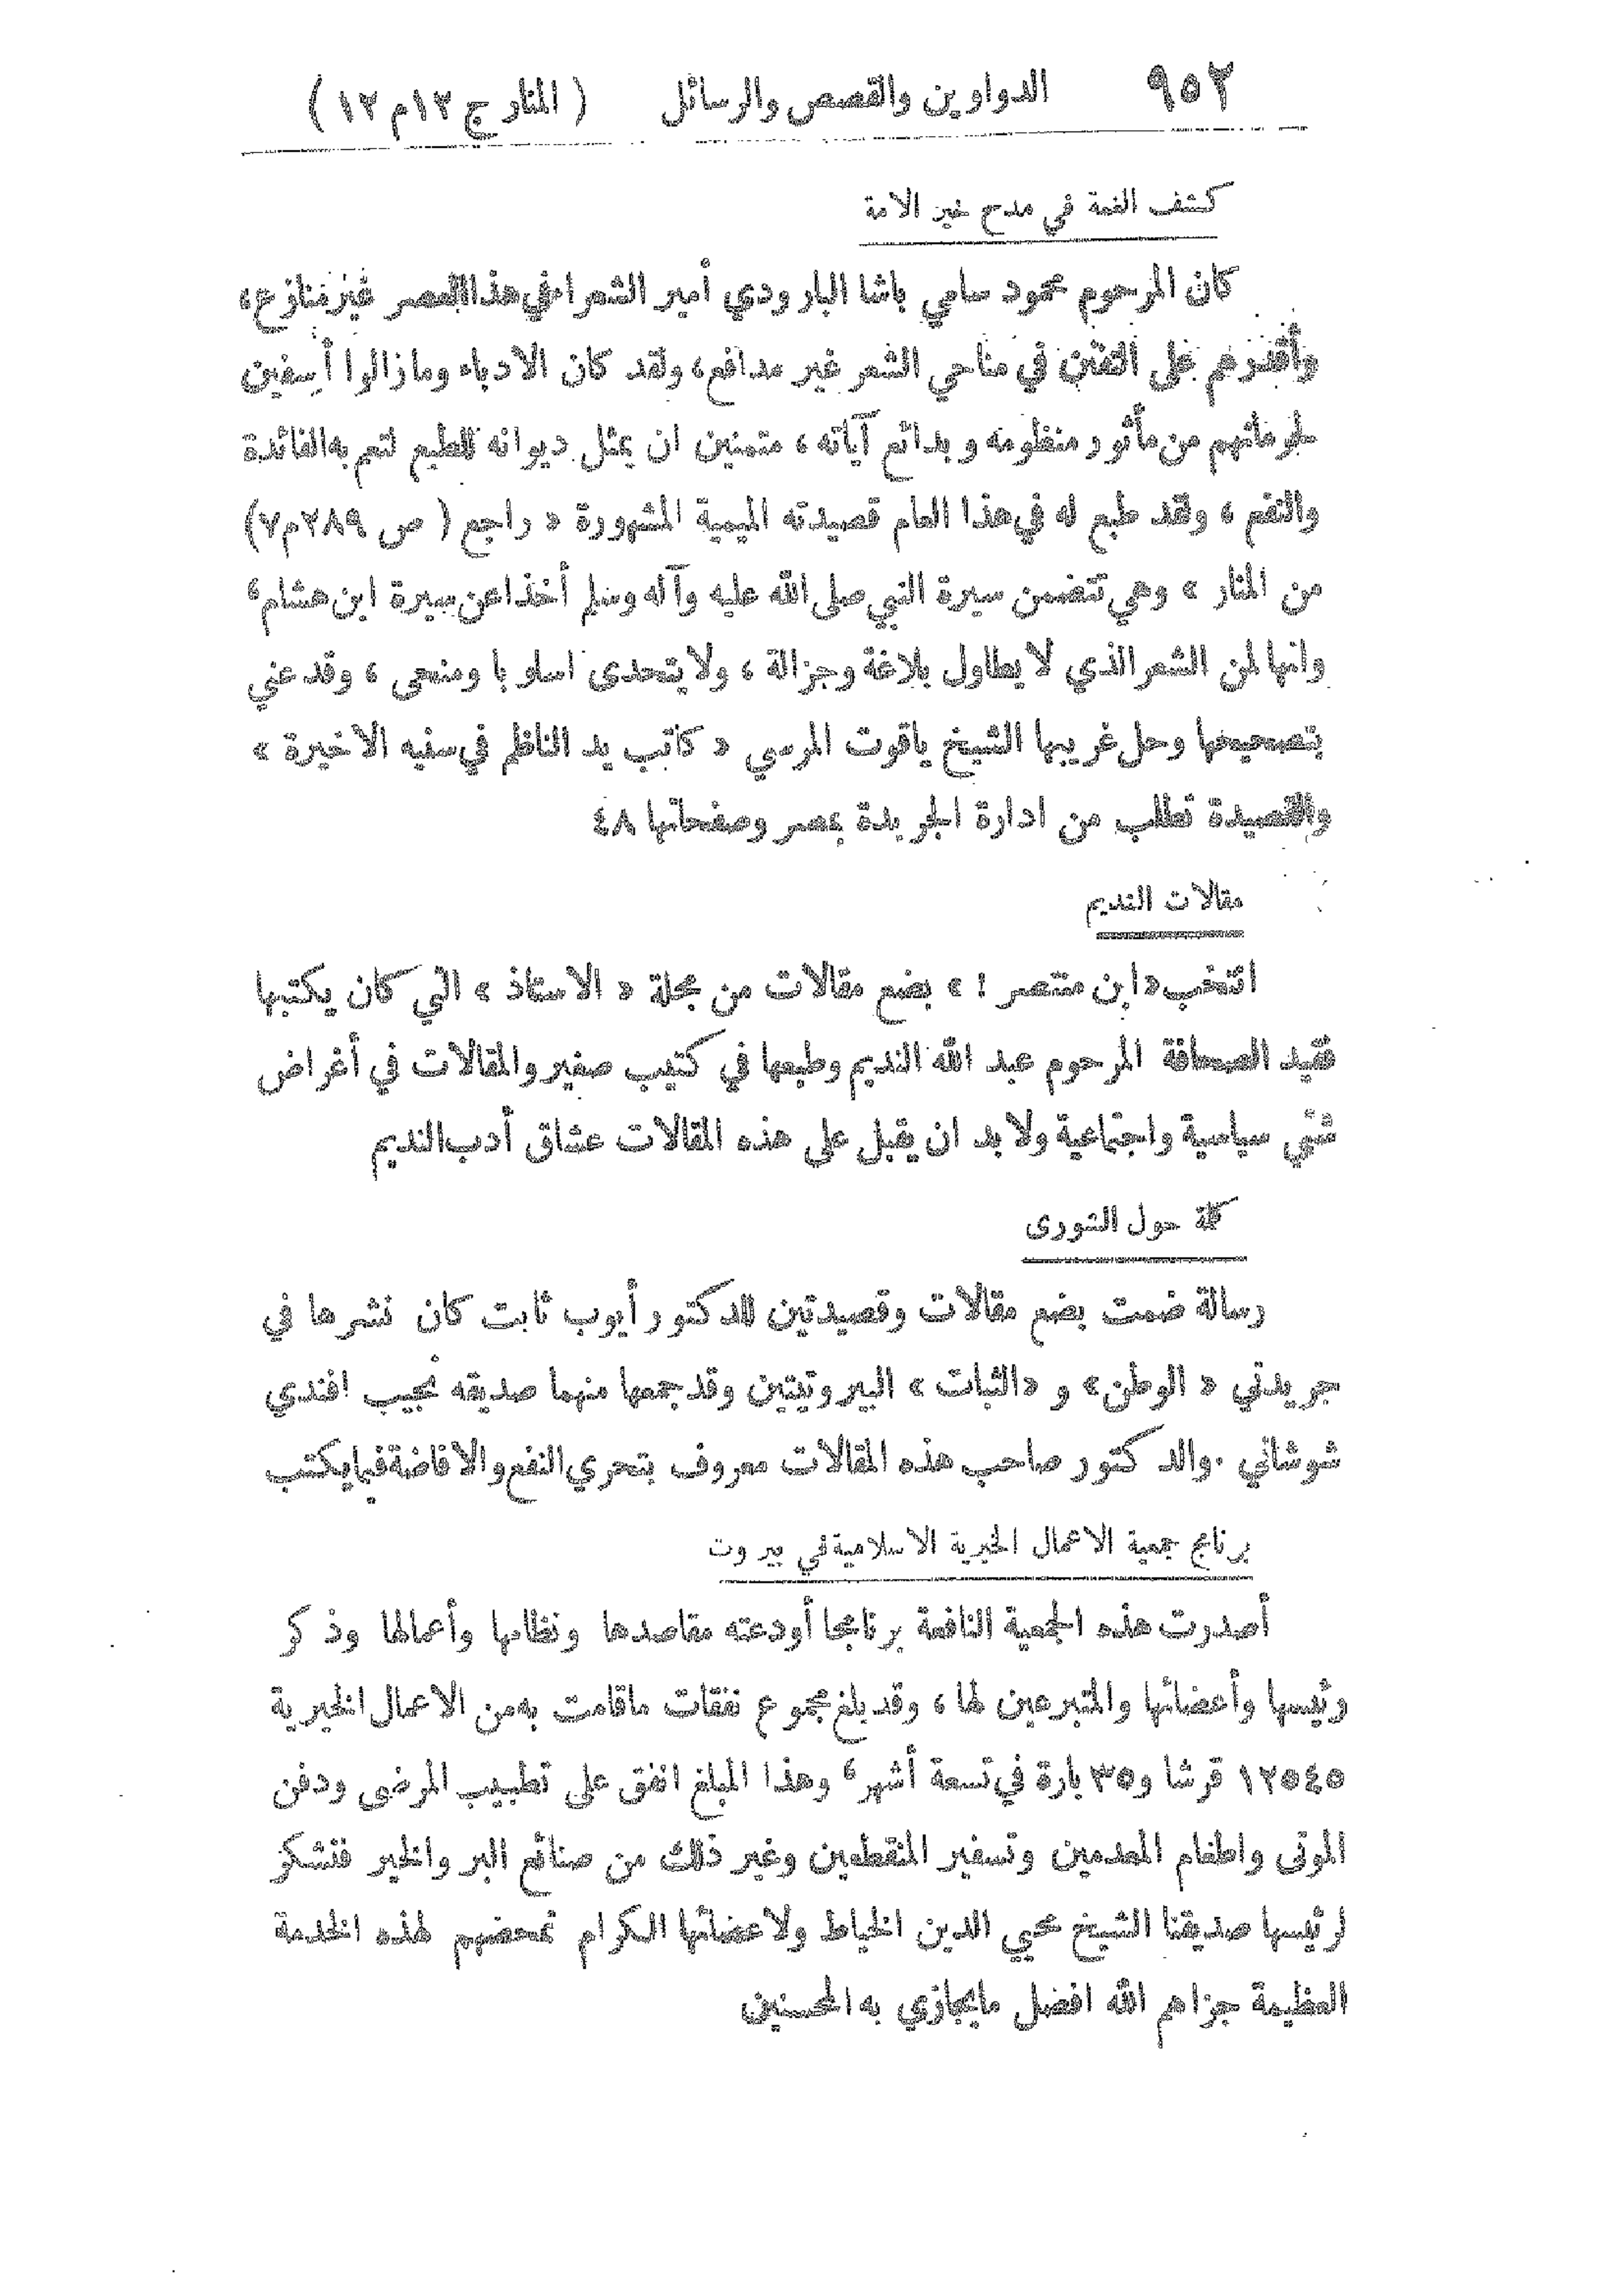 ٩٥٢ الدواوين والقصص والرسائل ( المنار ج ١٢ م ١٢ )
كشف الغمة في مدح خير الامة
كان المرحوم محمود سامي باشا البارودي أمير الشعراء في هذا العصر غير منازع ،
وأقدرهم على التفنن في مناحي الشعر غير مدافع ، ولقد كان الادباء وما زالوا أسفين
لحرمانهم من مأثور منظومه وبدائع آياته ، متمنين ان يمثل ديوانه للطبع لتعم به الفائدة
والنفع ، ولقد طبع له في هذا العام قصيدته الميمية المشهورة « راجع ( ص ٢٨٩ م ٧ )
من المنار » وهي تتضمن سيرة النبي صلى الله عليه وآله وسلم أخذا عن سيرة ابن هشام ،
وانها لمن الشعر الذي لا يطاول بلاغة وجزالة ، ولا يتحدى اسلوبا ومنحى ، وقد عني
بتصحيحها وحل غريبها الشيخ ياقوت المرسي « كاتب يد الناظم في سنيه الاخيرة »
والقصيدة تطلب من ادارة الجريدة بمصر وصفحاتها ٤٨
مقالات النديم
انتخب « ابن منتصر ! » بضع مقالات من مجلة « الاستاذ » التي كان يكتبها
فقيد الصحافة المرحوم عبد الله النديم وطبعها في كتيب صغير والمقالات في أغراض
شتى سياسية واجتماعية ولا بد ان يقبل على هذه المقالات عشاق أدب النديم
كلمة حول الشورى
رسالة ضمت بضع مقالات وقصيدتين للدكتور أيوب ثابت كان نشرها في
جريدتي « الوطن » و « الثبات » البيروتيتين وقد جمعها منهما صديقه نجيب افندي
شوشاني . والدكتور صاحب هذه المقالات معروف بتحري النفع والافاضة فيما يكتب
برنامج جمعية الاعمال الخيرية الاسلامية في بيروت
أصدرت هذه الجمعية النافعة برنامجا أودعته مقاصدها ونظامها وأعمالها وذكر
رئيسها وأعضائها والمتبرعين لها ، وقد بلغ مجموع نفقات ماقامت به من الاعمال الخيرية
١٢٥٤٥ قرشا و٣٥ بارة في تسعة أشهر ، وهذا المبلغ انفق على تطبيب المرضى ودفن
الموتى واطعام المعدمين وتسفير المنقطعين وغير ذلك من صنائع البر والخير فنشكر
لرئيسها صديقنا الشيخ محيي الدين الخياط ولاعضائها الكرام تمحضهم لهذه الخدمة
العظيمة جزاهم الله افضل مايجازي به المحسنين